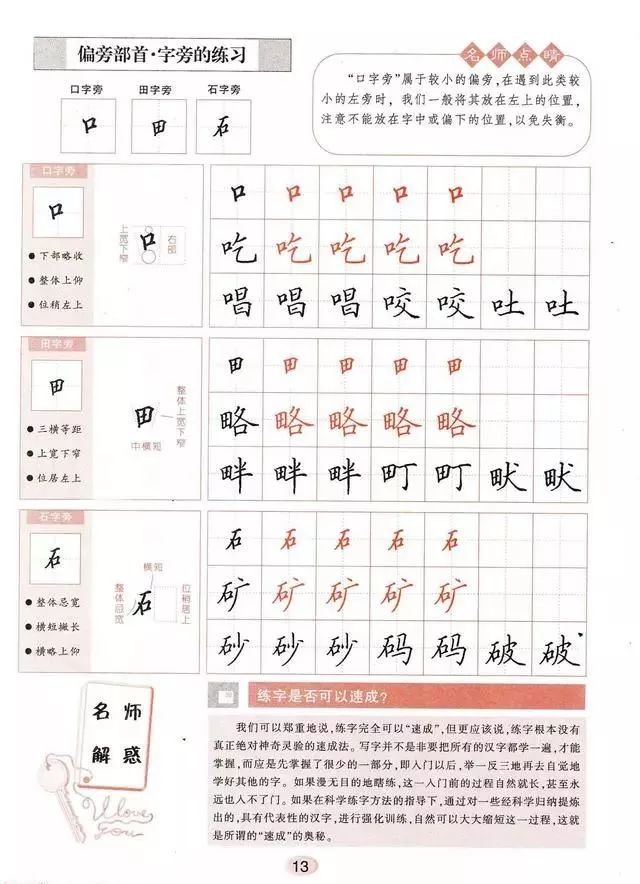 偏旁部首·字旁的练习
名师点睛
口字旁 田字旁 石字旁
口 田 石
“口字旁”属于较小的偏旁，在遇到此类较
小的左旁时，我们一般将其放在左上的位置，
注意不能放在字中或偏下的位置，以免失衡。
口字旁
口
下部略收
整体上仰
位稍左上
上宽下窄
口
右部
口 口 口 口 口
吃 吃 吃 吃 吃
唱 唱 唱 咬 咬 吐 吐
田字旁
田
三横等距
上宽下窄
位居左上
田
整体上宽下窄
中横短
田 田 田 田 田
略 略 略 略 略
畔 畔 畔 町 町 畎 畎
石字旁
石
整体忌宽
横短撇长
横略上仰
横短
整体忌宽
石
位稍居上
石 石 石 石 石
矿 矿 矿 矿 矿
砂 砂 砂 码 码 破 破
名师
解惑
I love
you
练字是否可以速成？
我们可以郑重地说，练字完全可以“速成”，但更应该说，练字根本没有
真正绝对神奇灵验的速成法。写字并不是非要把所有的汉字都学一遍，才能
掌握，而应是先掌握了很少的一部分，即入门以后，举一反三地再去自觉地
学好其他的字。如果漫无目的地瞎练，这一入门前的过程自然就长，甚至永
远也入不了门。如果在科学练字方法的指导下，通过对一些经科学归纳提炼
出的，具有代表性的汉字，进行强化训练，自然可以大大缩短这一过程，这就
是所谓的“速成”的奥秘。
13